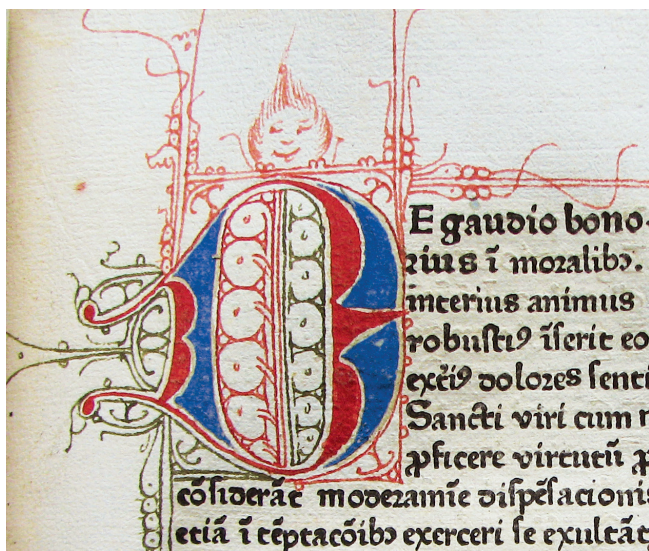 DE gaudio bono-
rius ī moralibꝫ.
interius animus
robustiꝰ īserit eo
exti̅ꝰ dolores senti
Sancti viri cum
ꝓficere virtutū ꝑ
cōsiderāt moderamīe dispēsacionis
etiā ī tēptacōibꝫ exerceri se exultāt